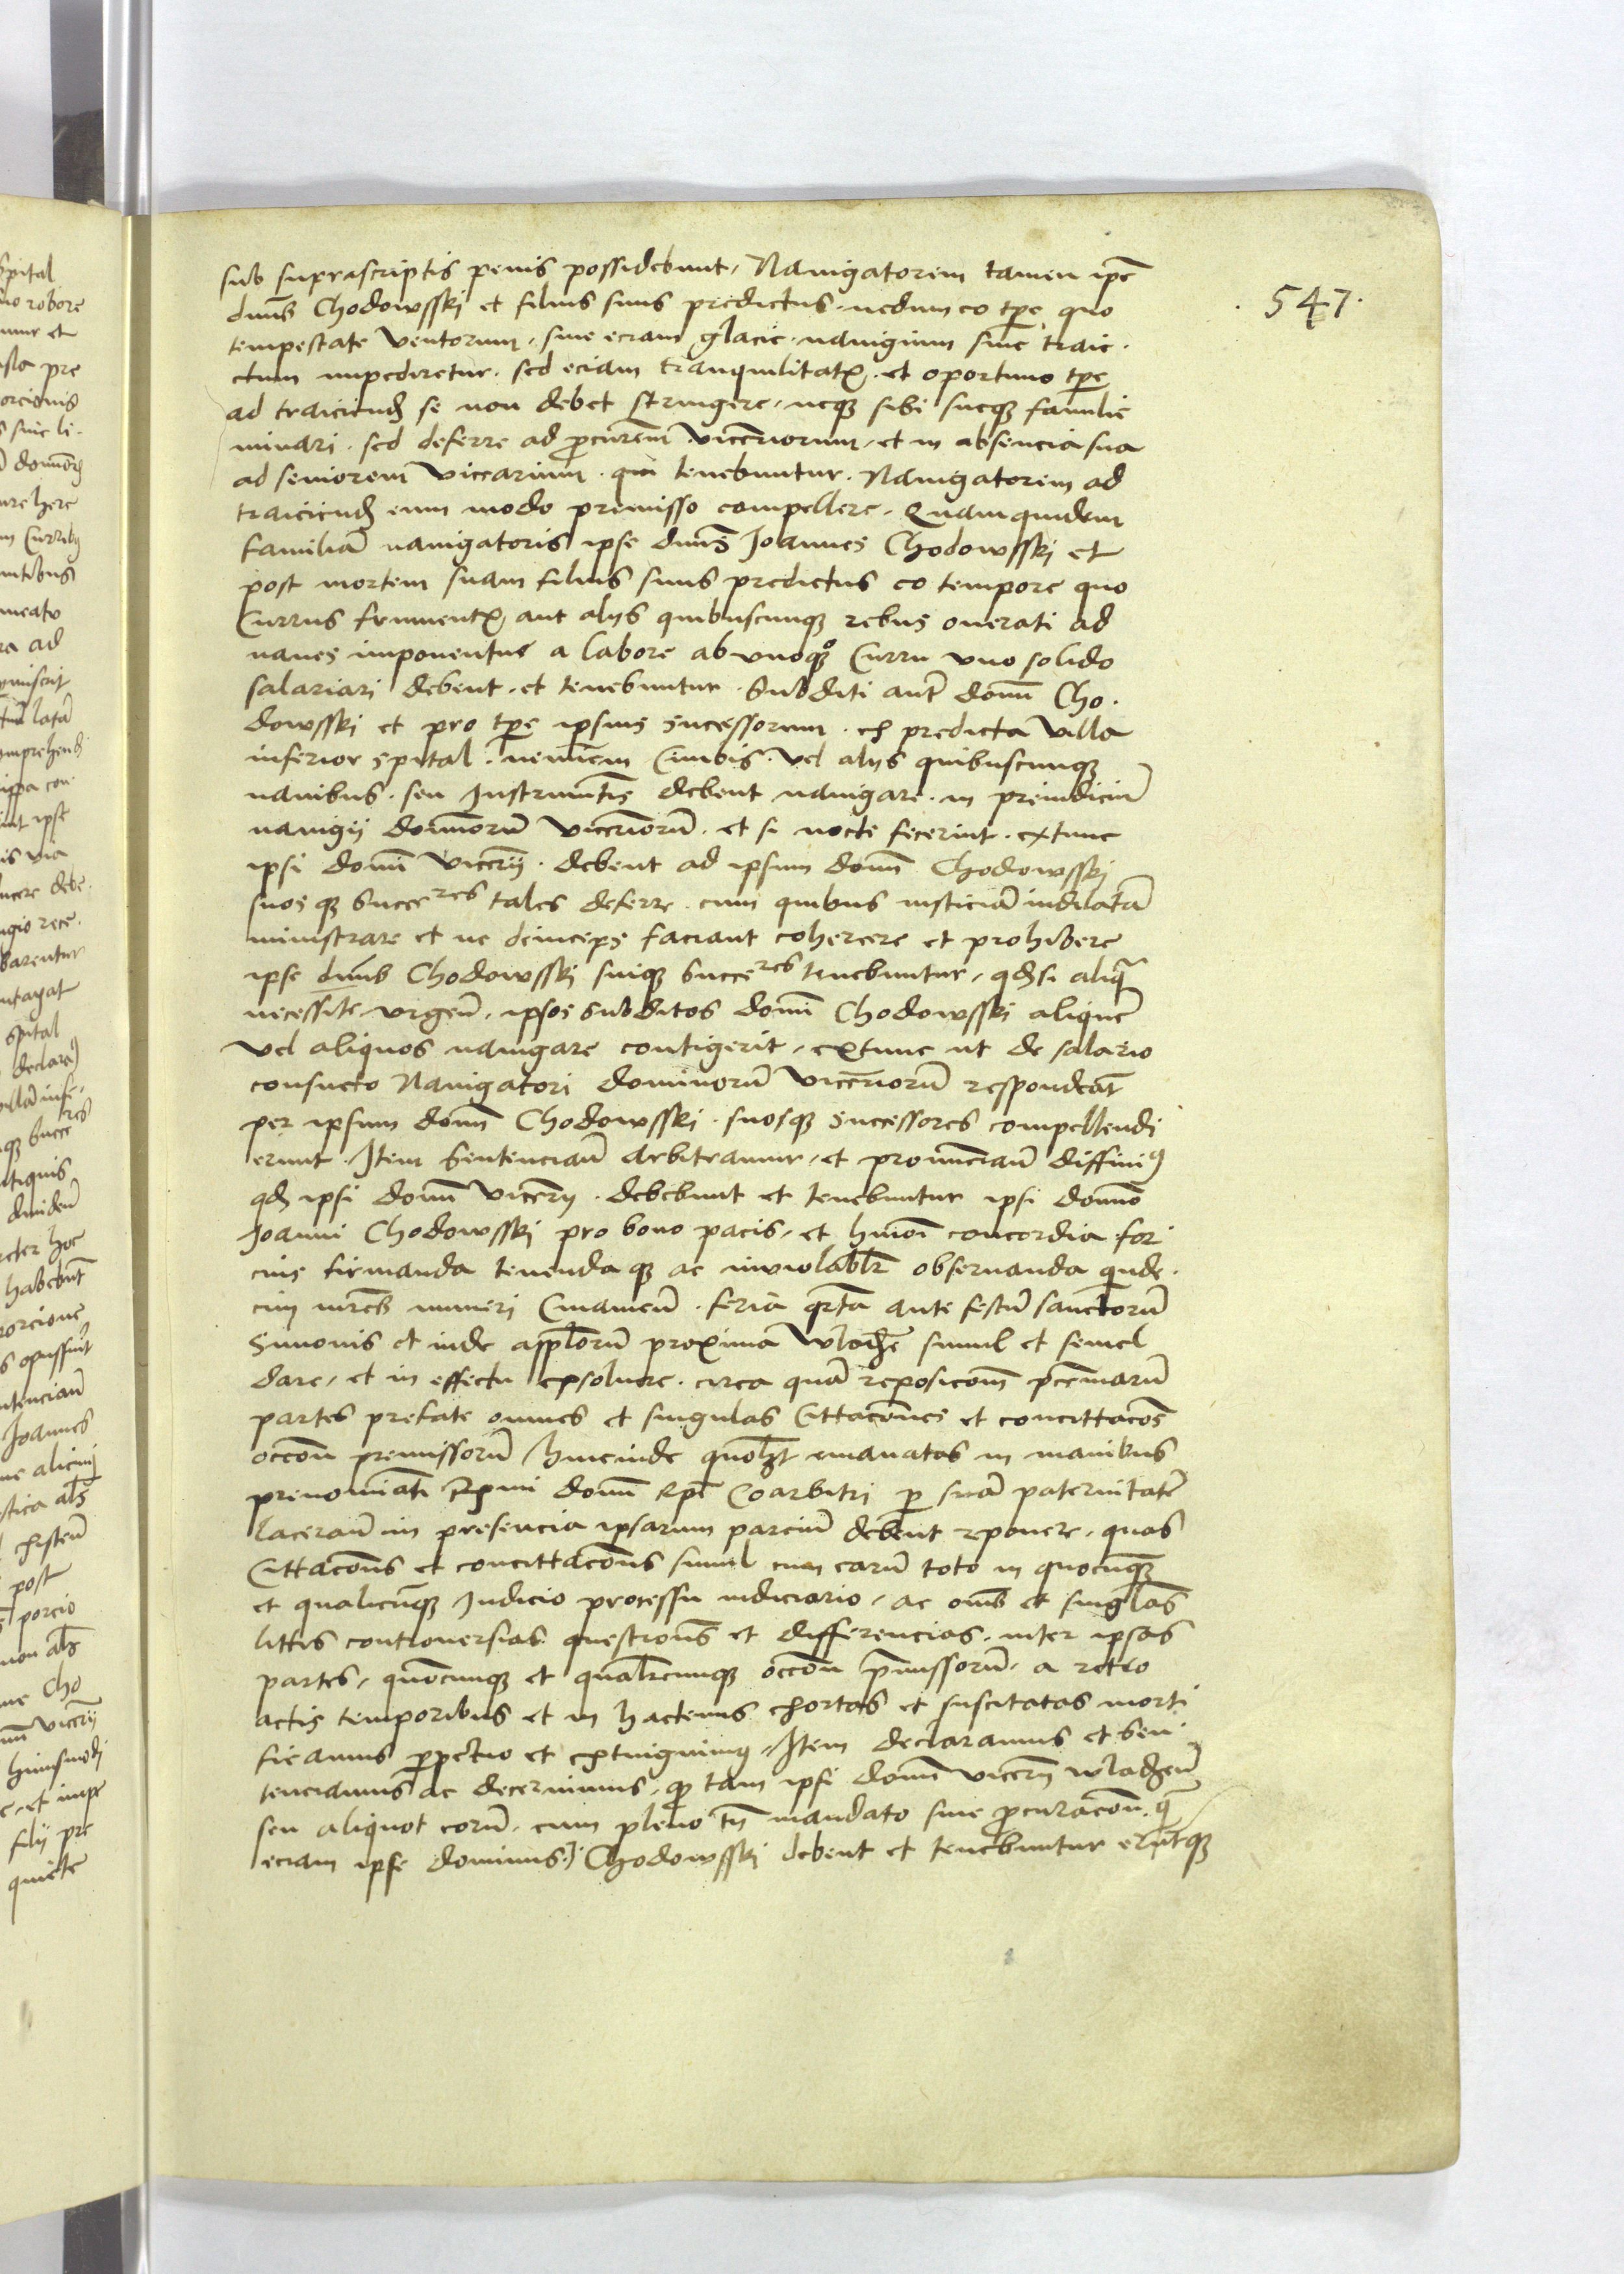 547.
sub suprascriptis penis possidebunt, Nauigatorem tamen ipē
dnūs Chodowsski et filius suus predictus. nedum eo tpē quo
tempestate ventorum, siue eciam glacie. nauigium siue traic.
ctum impediretur. sed eciam tranquilitatꝭ. et oportuno tpē
ad traiciendꝭ se non debet stringere, neqꝫ sibi sueqꝫ familie
minari. sed deferre ad ꝓcurēm viceriorum, et in absencia sua
ad seniorem viccarium. qui tenebuntur. Nauigatorem ad
traiciendꝭ eum modo premisso compellere. Quamquidem
familiā nauigatoris ipse dnūs Joannes Chodowsski et
post mortem suam filius suus predictus eo tempore quo
Currus frumentꝭ aut alijs quibuscunqꝫ rebus onerati ad
naues imponentur a labore ab vnoqꝫ° Curru vno solido
salariari debent. et tenebuntur. Subditi aūt domī Cho.
dowsski et pro tpē ipsius successorum. ex predicta villa
inferior spital. neminem Cimbis. vel alijs quibuscunqꝫ
nauibus. seu Instrumētis debent nauigare. in preiudiciū
nauigij dominorū viceriorū. et si nocte fecerint. extunc
ipsi domī vicerij. debent ad ipsum domī Chodowsski
suosqꝫ Succeres tales deferre. cum quibus iusticiā indilatā
ministrare et ne deinceps faciant cohercere et prohibere
ipse dnūs Chodowsski suiqꝫ Succeres tenebuntur, qd si aliqᵃ
necessite vrgeñ. ipsos subditos domī Chodowsski aliquē
vel aliquos nauigare contigerit, extunc ut de salario
consueto Nauigatori dominorū viceriorū respondeāt
per ipsum domī Chodowsski. suosqꝫ successores compellendi
erunt. Item Sentenciam̄ arbitramur, et pronunciam̄ diffini⁹
qd ipsi domī vicerij. debebunt et tenebuntur ipsi domīo
Joanni Chodowsski pro bono pacis, et hmōi concordia for
cius firmanda tenendaqꝫ ac inuiolablr̄ obseruanda quinde.
cim mrcās numeri feria qrta ante festū sanctorū
Simonis et iude applorū proxima simul et semel
dare, et in effectu exsoluere. circa quā reposicōm pecuniarū
partes prefate omnes et singulas Cittacōnes et concittacōs
occōn premissorū hincinde quolꝫt emanatas in manibus
prenominati domī Epī Coarbitri p suā paternitatē
laceran̄ in presencia ipsarum parciū debent reponere, quas
Cittacōns et concittacōns simul cum earū toto in quocūqꝫ
et qualicūqꝫ Iudicio processu iudiciario, ac om̄s et singlas
littis controuersias questionēs et differencias. inter ipsas
partes, quōcunqꝫ et qualrcunqꝫ occōn p̄missorū, a retro
actis temporibus et in hactenus exortas et suscitatas morti
ficamus ꝑpetuo et extinguimꝰ. Item declaramus et sen
tenciamus ac decernimus. qꝫ tam ipsi domī vicerij wladzeñ
seu aliquot eorū. cum pleno tn̄ mandato siue ꝓcuracōn. qᵃ
eciam ipse dominus J Chodowsski debent et tenebuntur erūtqꝫ